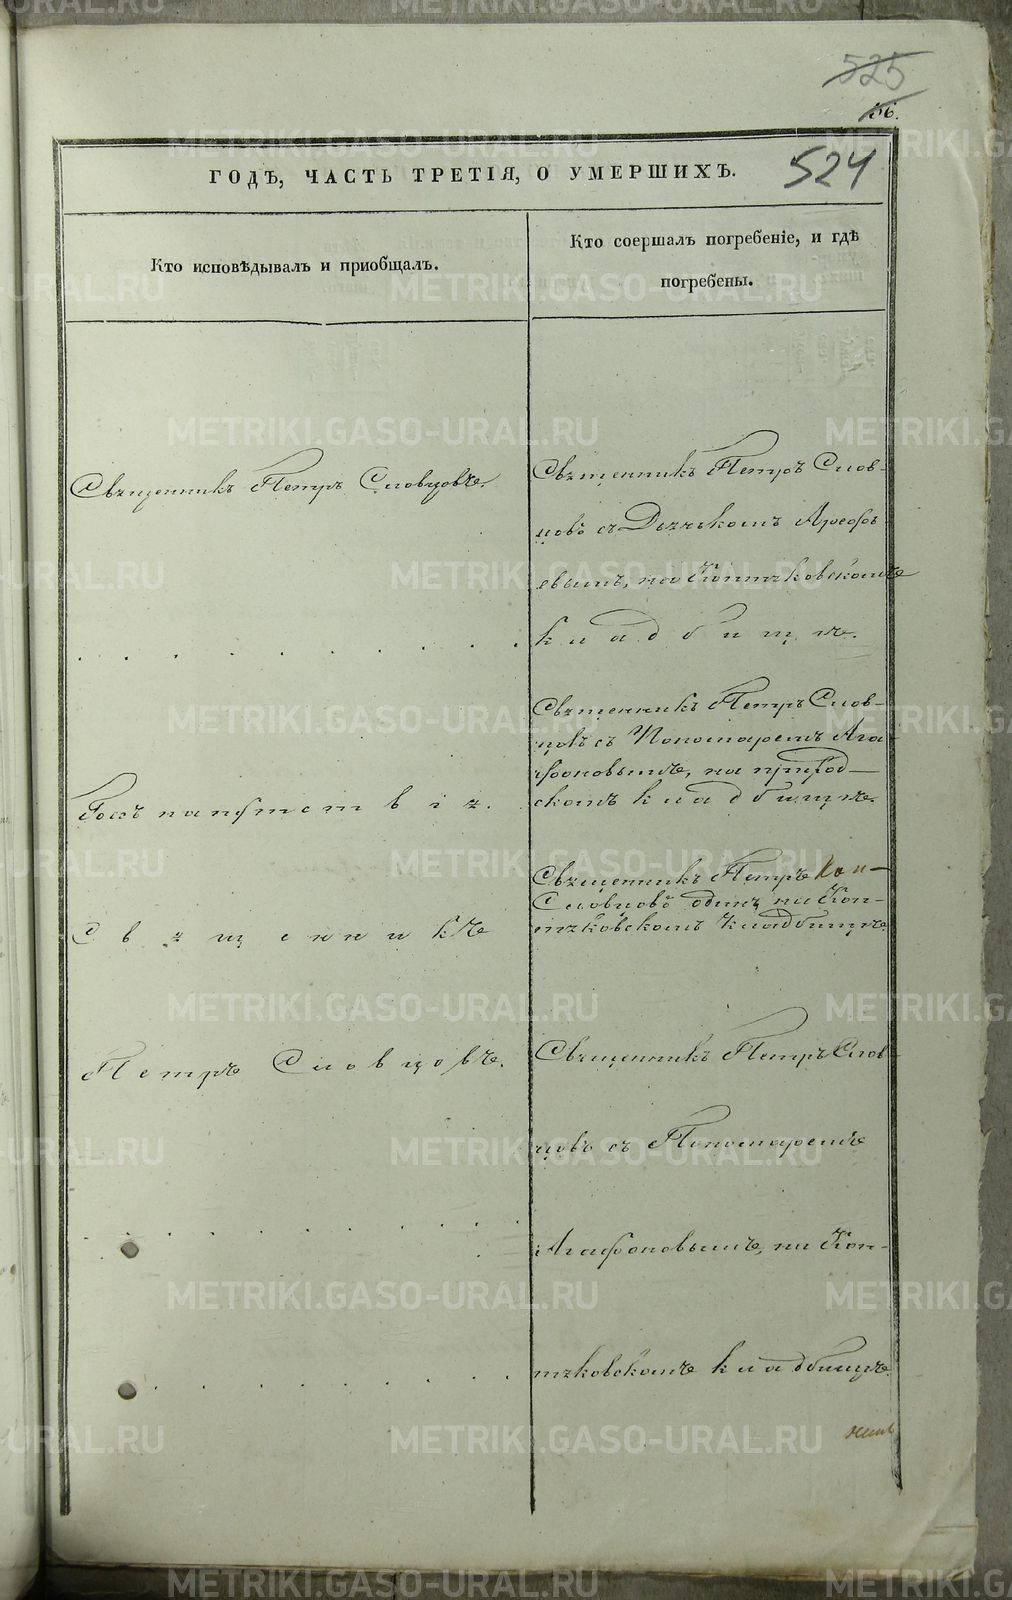 525
56.
524
ГОДѢ, ЧАСТЬ ТРЕТІЯ, О УМЕРШИХЪ.
Кто исповѣдывалъ и приобщалъ.
Кто соершалъ погребеніе, и гдѣ
погребены.
Священникъ Петръ Словцовъ.
Священникъ Петръ Слов-
цовъ съ Дьячькомъ
евымъ, на Коптяковскомъ
кладбищѣ.
Священникъ Петръ Слов-
цовъ съ Пономаремъ Ага-
фоновымъ, на приход-
скомъ кладбищѣ.
Безъ напутствія.
Священникъ Петръ
Словцовъ одинъ на Коп-
тяковскомъ кладбищѣ
Священникъ
Петръ Словцовъ.
Священникъ Петръ Слов-
цовъ съ Пономаремъ
Агафоновымъ, на Коп-
тяковскомъ кладбищѣ.
METRIKI.GASO-URAL.RU